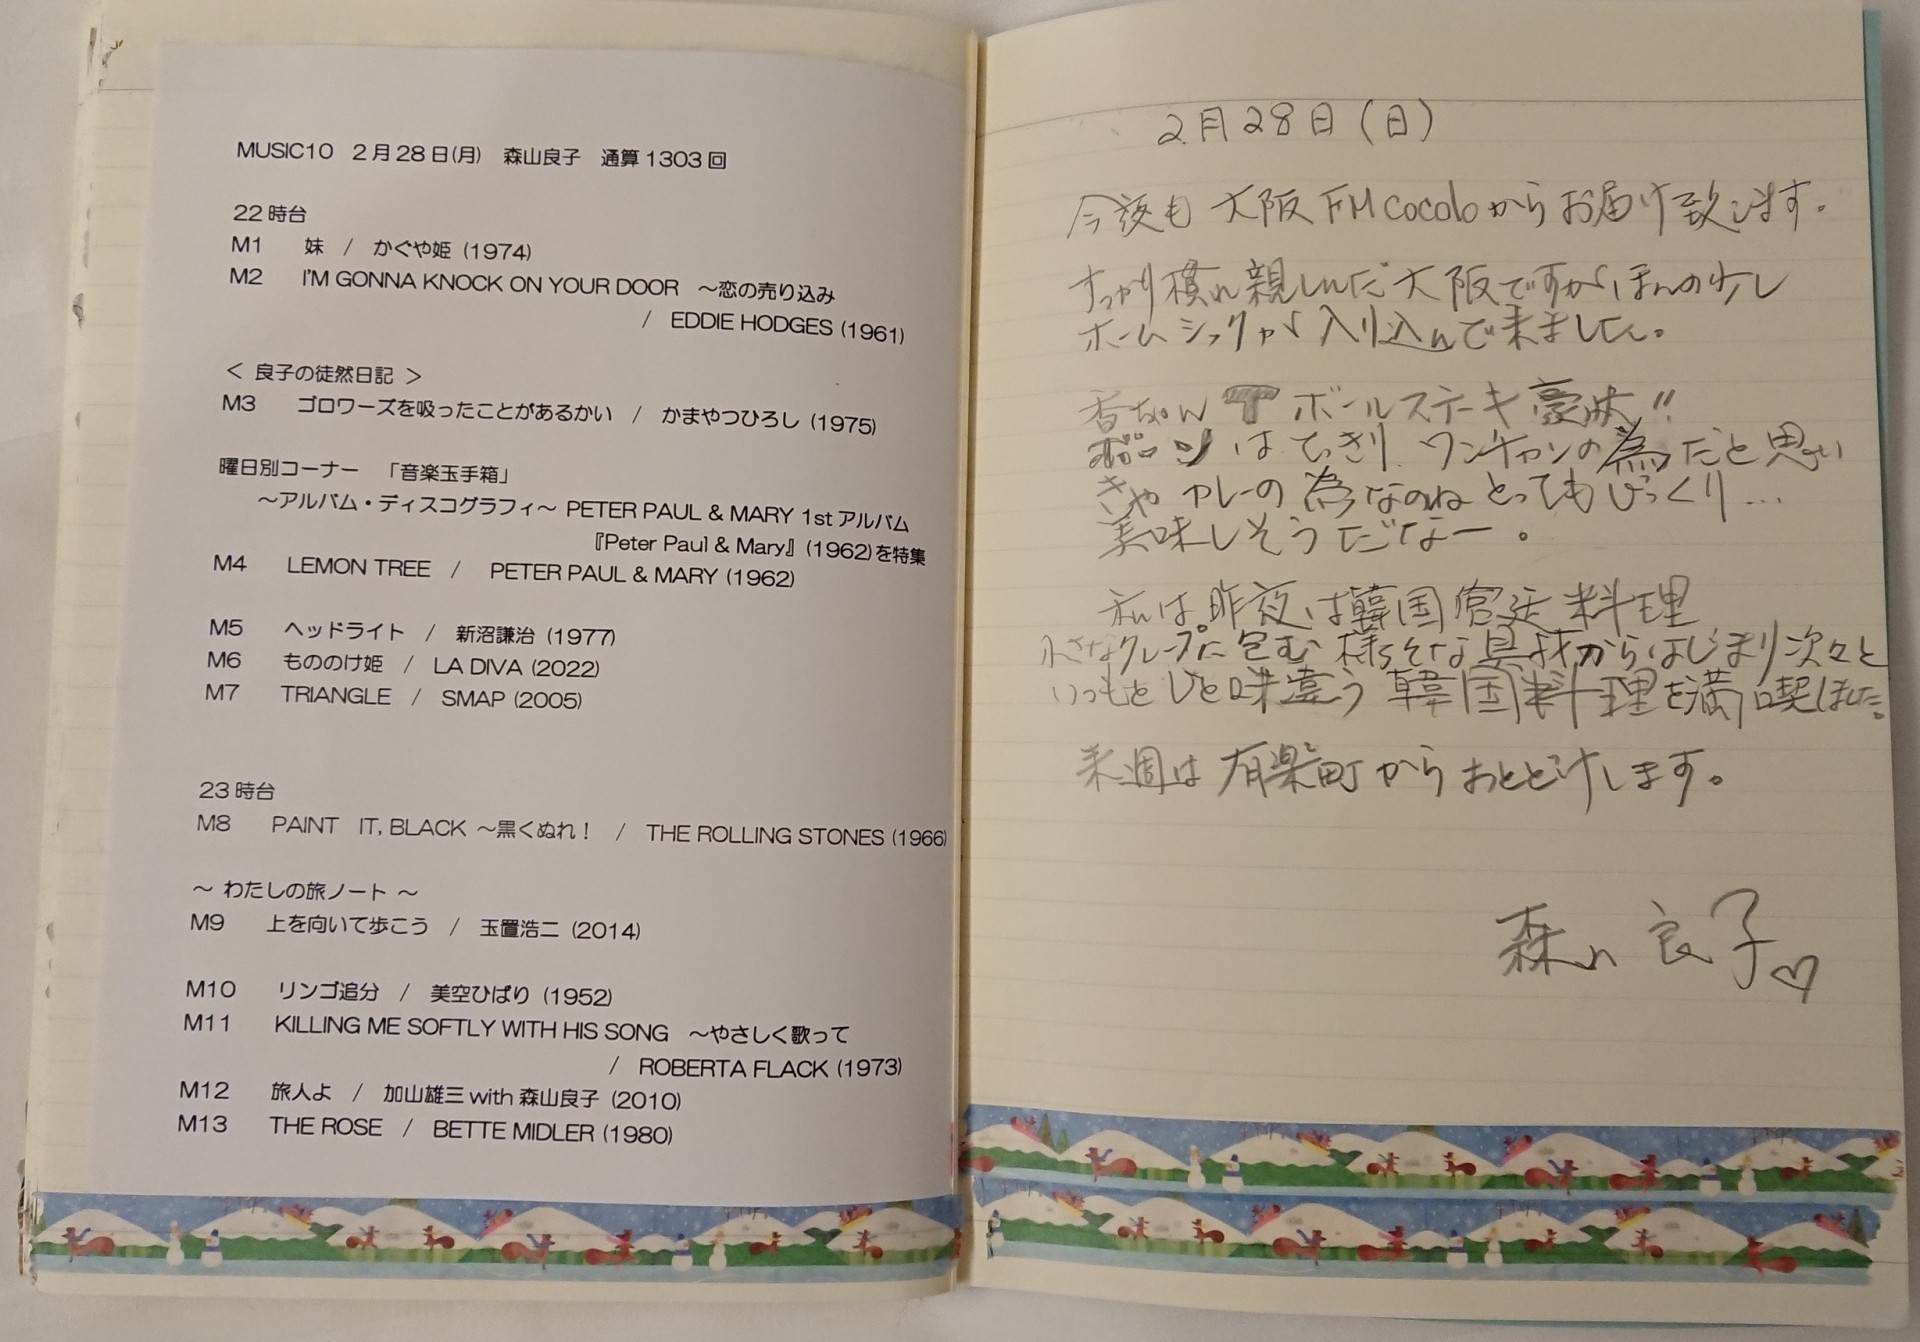 MUSIC10 2月28日(月) 森山良子 通算1303回
22時台
M1 妹 / かぐや姫 (1974)
M2 I'M GONNA KNOCK ON YOUR DOOR ～恋の売り込み
/ EDDIE HODGES (1961)
＜ 良子の徒然日記 ＞
M3 ゴロワーズを吸ったことがあるかい / かまやつひろし (1975)
曜日別コーナー 「音楽玉手箱」
～アルバム・ディスコグラフィ～ PETER PAUL & MARY 1stアルバム
『Peter Paul & Mary』(1962)を特集
M4 LEMON TREE / PETER PAUL & MARY (1962)
M5 ヘッドライト / 新沼謙治 (1977)
M6 もののけ姫 / LA DIVA (2022)
M7 TRIANGLE / SMAP (2005)
23時台
M8 PAINT IT, BLACK ～黒くぬれ！ / THE ROLLING STONES (1966)
～ わたしの旅ノート ～
M9 上を向いて歩こう / 玉置浩二 (2014)
M10 リンゴ追分 / 美空ひばり (1952)
M11 KILLING ME SOFTLY WITH HIS SONG ～やさしく歌って
/ ROBERTA FLACK (1973)
M12 旅人よ / 加山雄三 with 森山良子 (2010)
M13 THE ROSE / BETTE MIDLER (1980)
2月28日(日)
今夜も 大阪 FM cocoloからお届け致します。
すっかり慣れ親しんだ大阪ですが、ほんの少し
ホームシックが入り込んで来ました。
香ちゃん T ボールステーキ 豪快!!
ボーン はてっきり ワンチャンの為だと思い
きや カレーの為なのね とってもびっくり…
美味しそうだなー。
私は昨夜は韓国宮廷料理
小さなクレープに包む 様々な具材からはじまり次々と
いつもとひと味違う 韓国料理を満喫しました。
来週は 有楽町から おとどけします。
森山 良子♡